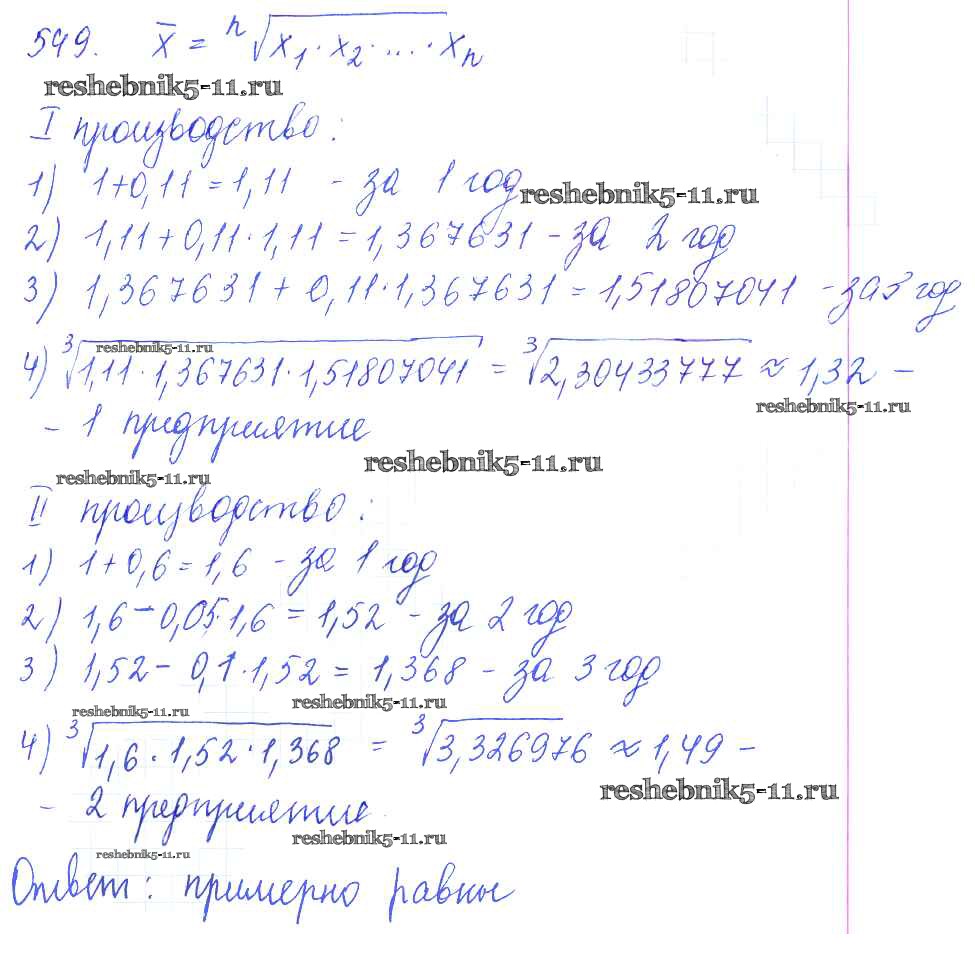 549. x̄ = ⁿ√(x₁ · x₂ · ... · xₙ)
reshebnik5-11.ru
I производство:
1) 1+0,11 = 1,11 - за 1 год
reshebnik5-11.ru
2) 1,11 + 0,11 · 1,11 = 1,367631 - за 2 год
3) 1,367631 + 0,11 · 1,367631 = 1,51807041 - за 3 год
reshebnik5-11.ru
4) ³√(1,11 · 1,367631 · 1,51807041) = ³√2,30433777 ≈ 1,32 -
reshebnik5-11.ru
- 1 предприятие
reshebnik5-11.ru
reshebnik5-11.ru
II производство:
1) 1+0,6 = 1,6 - за 1 год
2) 1,6 - 0,05 · 1,6 = 1,52 - за 2 год
3) 1,52 - 0,1 · 1,52 = 1,368 - за 3 год
reshebnik5-11.ru
reshebnik5-11.ru
4) ³√(1,6 · 1,52 · 1,368) = ³√3,326976 ≈ 1,49 -
reshebnik5-11.ru
- 2 предприятие
reshebnik5-11.ru
reshebnik5-11.ru
Ответ: примерно равны